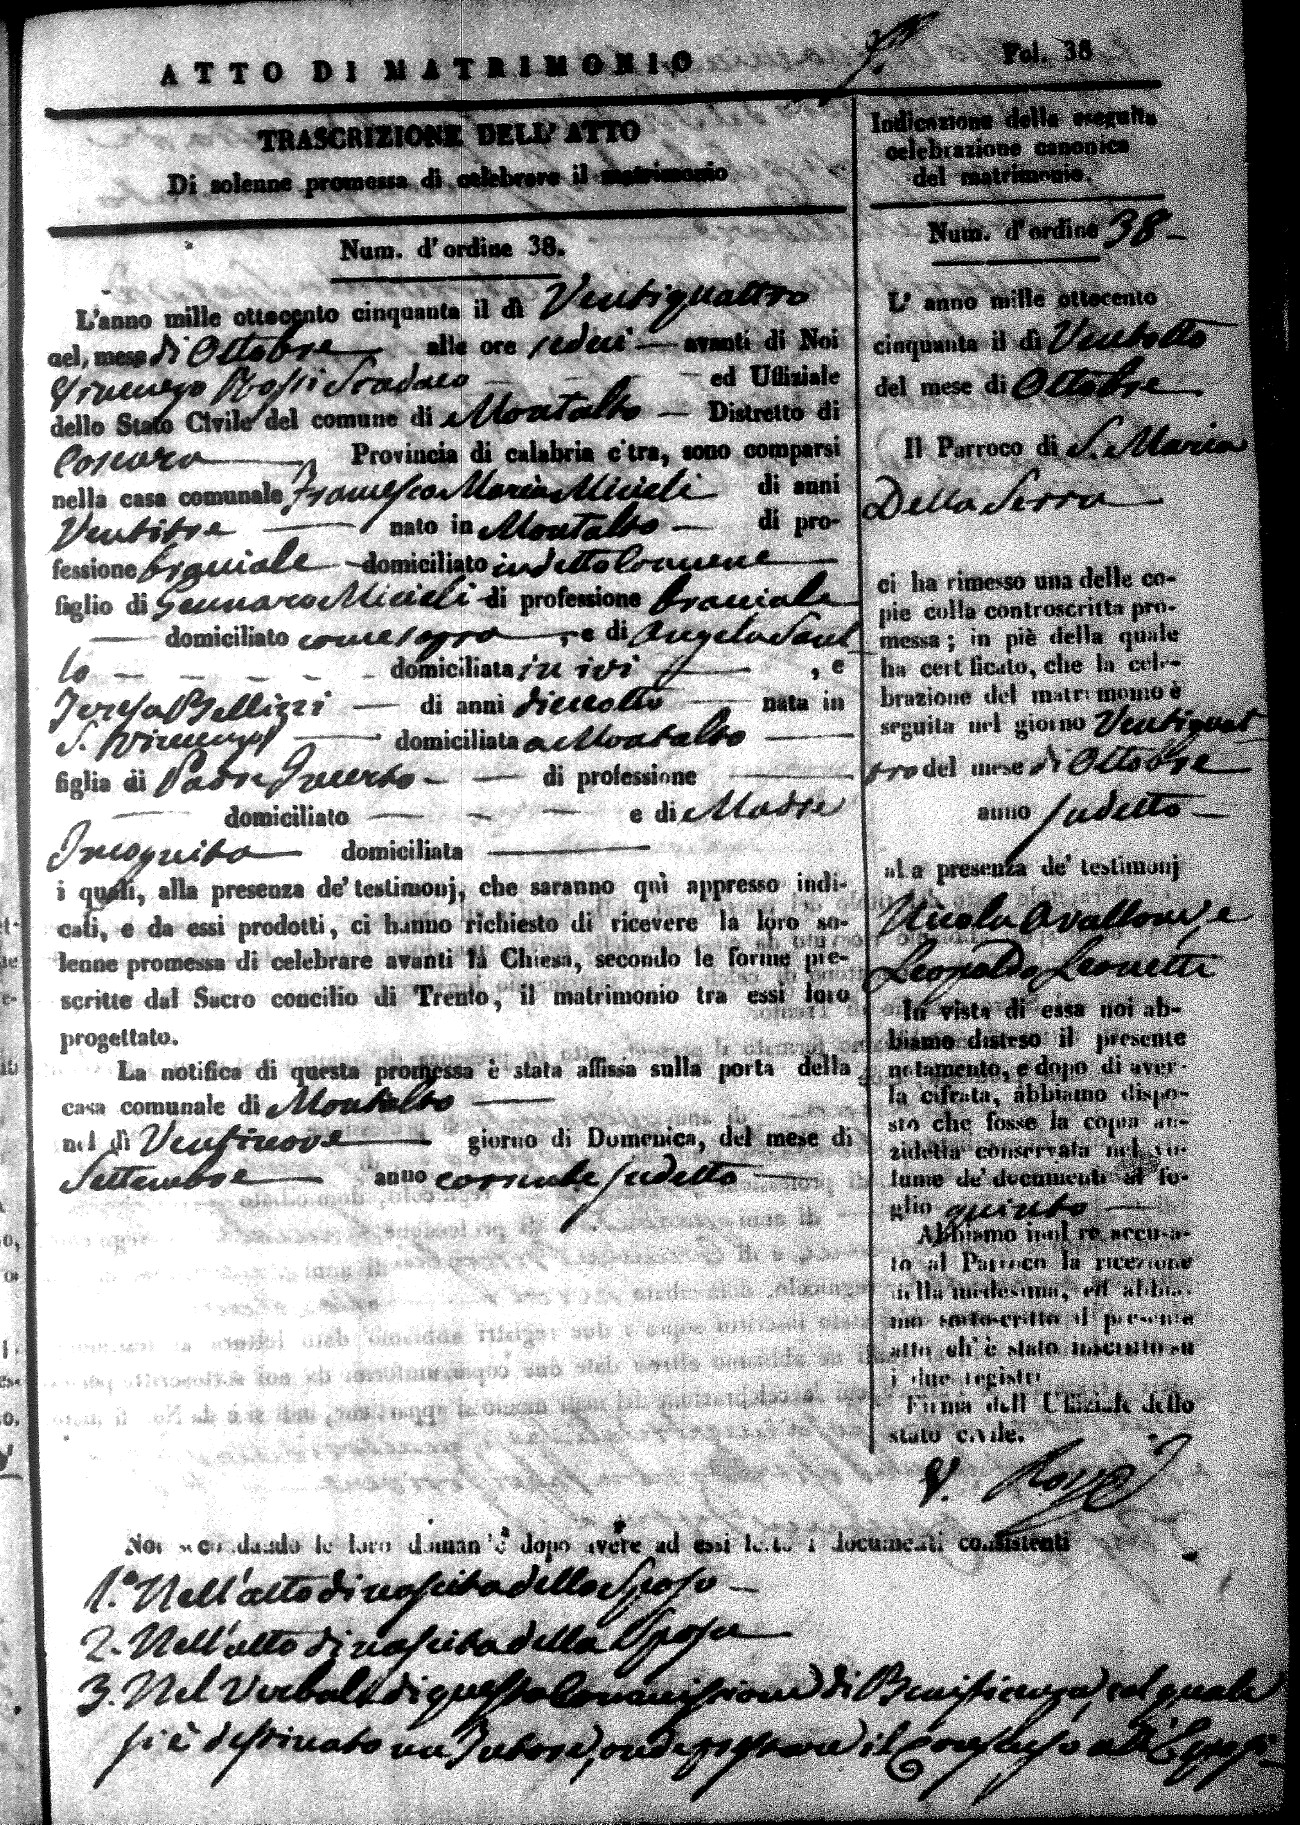 ATTO DI MATRIMONIO
Fol. 38
TRASCRIZIONE DELL' ATTO
Di solenne promessa di celebrare il matrimonio
Num. d' ordine 38.
L'anno mille ottocento cinquanta il dì Ventiquattro
nel, mese di Ottobre alle ore sedici avanti di Noi
Vincenzo Rossi Sindaco ed Uffiziale
dello Stato Civile del comune di Montalto Distretto di
Cosenza Provincia di calabria citra, sono comparsi
nella casa comunale Francesco Maria Micieli di anni
Ventitre nato in Montalto di pro-
fessione bracciale domiciliato in detto Comune
figlio di Gennaro Micieli di professione bracciale
domiciliato come sopra, e di Angela Saul
lo domiciliata in ivi , e
Teresa Bellizzi di anni dieciotto nata in
S. Vincenzo domiciliata a Montalto
figlia di Padre Incerto di professione
domiciliato e di Madre
Incognita domiciliata
i quali, alla presenza de' testimonj, che saranno quì appresso indi-
cati, e da essi prodotti, ci hanno richiesto di ricevere la loro so-
lenne promessa di celebrare avanti la Chiesa, secondo le forme pre-
scritte dal Sacro concilio di Trento, il matrimonio tra essi loro
progettato.
La notifica di questa promessa è stata affissa sulla porta della
casa comunale di Montalto
nel dì Ventinove giorno di Domenica, del mese di
Settembre anno corrente sudetto
Indicazione della eseguita
celebrazione canonica
del matrimonio.
Num. d' ordine 38
L' anno mille ottocento
cinquanta il dì Ventotto
del mese di Ottobre
Il Parroco di S. Maria
Della Serra
ci ha rimesso una delle co-
pie colla controscritta pro-
messa; in piè della quale
ha certificato, che la cele-
brazione del matrimonio è
seguita nel giorno Ventiquat
tro del mese di Ottobre
anno sudetto
alla presenza de' testimonj
Nicola Avallone, e
Leopoldo Leonetti
In vista di essa noi ab-
biamo disteso il presente
notamento, e dopo di aver-
la cifrata, abbiamo dispo-
sto che fosse la copia an-
zidetta conservata nel vo-
lume de' documenti al fo-
glio quinto
Abbiamo inoltre accusa-
to al Parroco la ricezione
della medesima, ed abbia-
mo sottoscritto il presente
atto ch' è stato inscritto su
i due registri
Firma dell' Uffiziale dello
stato civile.
V. Rossi
Noi secondando le loro domande dopo avere ad essi letto i documenti consistenti
1.° Nell'atto di nascita dello Sposo
2. Nell'atto di nascita della Sposa
3. Nel Verbale di questa Commissione di Beneficenza, col quale
si è destinato un Tutore, onde prestare il Consenso all'Esposi